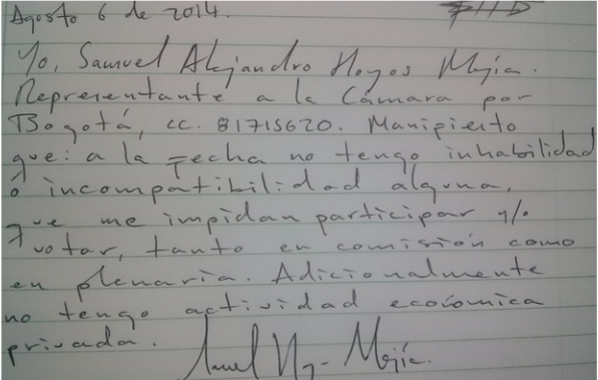 Agosto 6 de 2014.
Yo, Samuel Alejandro Hoyos Mejía.
Representante a la Cámara por
Bogotá, cc. 81715620. Manifiesto
que: a la fecha no tengo inhabilidad
o incompatibilidad alguna,
que me impidan participar y/o
votar, tanto en comisión como
en plenaria. Adicionalmente
no tengo actividad económica
privada.
Mejía.